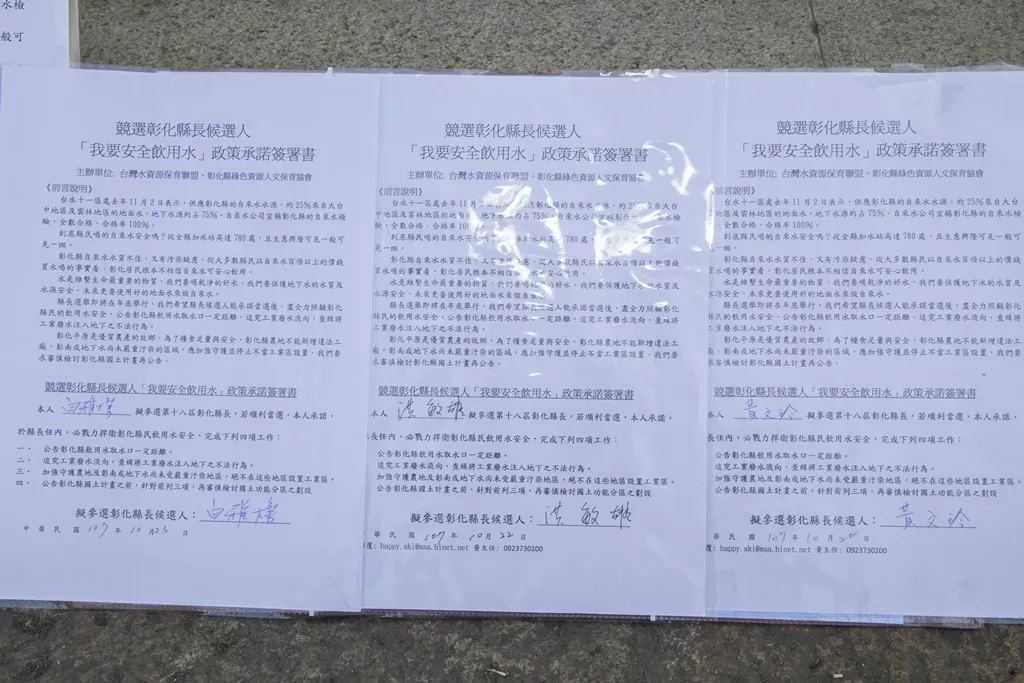 水檢
般可
競選彰化縣長候選人
「我要安全飲用水」政策承諾簽署書
主辦單位: 台灣水資源保育聯盟、彰化縣綠色資源人文保育協會
《前言說明》
台水十一區處去年11月2日表示,供應彰化縣的自來水水源,約25%來自大台
中地區及雲林地區的地面水,地下水源約占75%。自來水公司宣稱彰化縣的自來水檢
驗,全數合格,合格率100%。
到底縣民喝的自來水安全嗎?從全縣加水站高達780處,且生意興隆可見一般可
見一斑。
彰化縣自來水水質不佳,又有污染疑慮,從大多數縣民以自來水百倍以上的價錢
買水喝的事實看,彰化居民根本不相信自來水可安心飲用。
水是維繫生命最重要的物質,我們要喝乾淨的好水,我們要保護地下水的水質及
水源安全,未來更要使用好的地面水來做自來水。
縣長選舉即將在年底舉行,我們希望縣長候選人能承諾當選後,盡全力照顧彰化
縣民的飲用水安全,公告彰化縣飲用水取水口一定距離,追究工業廢水流向,查緝將
工業廢水注入地下之不法行為。
彰化平原是優質農產的故鄉,為了糧食足量與安全,彰化縣農地不能新增違法工
廠,彰南或地下水尚未嚴重汙染的區域,應加強守護並停止不當工業區設置,我們要
求審慎檢討彰化縣國土計畫再公告。
競選彰化縣長候選人「我要安全飲用水」政策承諾簽署書
本人 白雅燦 擬參選第十八屆彰化縣長,若順利當選,本人承諾,
於縣長任內,必戮力捍衛彰化縣民飲用水安全,完成下列四項工作:
一、 公告彰化縣飲用水取水口一定距離。
二、 追究工業廢水流向,查緝將工業廢水注入地下之不法行為。
三、 加強守護農地及彰南或地下水尚未受嚴重汙染地區,絕不在這些地區設置工業區。
四、 公告彰化縣國土計畫之前,針對前列三項,再審慎檢討國土功能分區之劃設
擬參選彰化縣長候選人: 白雅燦
中 華 民 國 107 年 10 月23 日
競選彰化縣長候選人
「我要安全飲用水」政策承諾簽署書
主辦單位: 台灣水資源保育聯盟、彰化縣綠色資源人文保育協會
前言說明》
台水十一區處去年11月2日表示,供應彰化縣的自來水水源,約25%來自大台
中地區及雲林地區的地面水,地下水源約占75%。自來水公司宣稱彰化縣的自來水檢
驗,全數合格,合格率100%。
到底縣民喝的自來水安全嗎?從全縣加水站高達780處,且生意興隆可見一般可
見一斑。
彰化縣自來水水質不佳,又有污染疑慮,從大多數縣民以自來水百倍以上的價錢
買水喝的事實看,彰化居民根本不相信自來水可安心飲用。
水是維繫生命最重要的物質,我們要喝乾淨的好水,我們要保護地下水的水質及
水源安全,未來更要使用好的地面水來做自來水。
縣長選舉即將在年底舉行,我們希望縣長候選人能承諾當選後,盡全力照顧彰化
縣民的飲用水安全,公告彰化縣飲用水取水口一定距離,追究工業廢水流向,查緝將
工業廢水注入地下之不法行為。
彰化平原是優質農產的故鄉,為了糧食足量與安全,彰化縣農地不能新增違法工
廠,彰南或地下水尚未嚴重汙染的區域,應加強守護並停止不當工業區設置,我們要
求審慎檢討彰化縣國土計畫再公告。
競選彰化縣長候選人「我要安全飲用水」政策承諾簽署書
本人 洪敏雄 擬參選第十八屆彰化縣長,若順利當選,本人承諾,
縣長任內,必戮力捍衛彰化縣民飲用水安全,完成下列四項工作:
公告彰化縣飲用水取水口一定距離。
追究工業廢水流向,查緝將工業廢水注入地下之不法行為。
加強守護農地及彰南或地下水尚未受嚴重汙染地區,絕不在這些地區設置工業區。
公告彰化縣國土計畫之前,針對前列三項,再審慎檢討國土功能分區之劃設
擬參選彰化縣長候選人: 洪敏雄
民 國 107 年 10 月 22 日
覆: happy.aki@msa.hinet.net 黃主任: 0923730200
競選彰化縣長候選人
「我要安全飲用水」政策承諾簽署書
主辦單位: 台灣水資源保育聯盟、彰化縣綠色資源人文保育協會
前言說明》
台水十一區處去年11月2日表示,供應彰化縣的自來水水源,約25%來自大台
中地區及雲林地區的地面水,地下水源約占75%。自來水公司宣稱彰化縣的自來水檢
驗,全數合格,合格率100%。
到底縣民喝的自來水安全嗎?從全縣加水站高達780處,且生意興隆可見一般可
見一斑。
彰化縣自來水水質不佳,又有污染疑慮,從大多數縣民以自來水百倍以上的價錢
買水喝的事實看,彰化居民根本不相信自來水可安心飲用。
水是維繫生命最重要的物質,我們要喝乾淨的好水,我們要保護地下水的水質及
水源安全,未來更要使用好的地面水來做自來水。
縣長選舉即將在年底舉行,我們希望縣長候選人能承諾當選後,盡全力照顧彰化
縣民的飲用水安全,公告彰化縣飲用水取水口一定距離,追究工業廢水流向,查緝將
工業廢水注入地下之不法行為。
彰化平原是優質農產的故鄉,為了糧食足量與安全,彰化縣農地不能新增違法工
廠,彰南或地下水尚未嚴重汙染的區域,應加強守護並停止不當工業區設置,我們要
求審慎檢討彰化縣國土計畫再公告。
競選彰化縣長候選人「我要安全飲用水」政策承諾簽署書
本人 黃文玲 擬參選第十八屆彰化縣長,若順利當選,本人承諾,
縣長任內,必戮力捍衛彰化縣民飲用水安全,完成下列四項工作:
公告彰化縣飲用水取水口一定距離。
追究工業廢水流向,查緝將工業廢水注入地下之不法行為。
加強守護農地及彰南或地下水尚未受嚴重汙染地區,絕不在這些地區設置工業區。
公告彰化縣國土計畫之前,針對前列三項,再審慎檢討國土功能分區之劃設
擬參選彰化縣長候選人: 黃文玲
民 國 107 年 10 月 22 日
覆: happy.aki@msa.hinet.net 黃主任: 0923730200